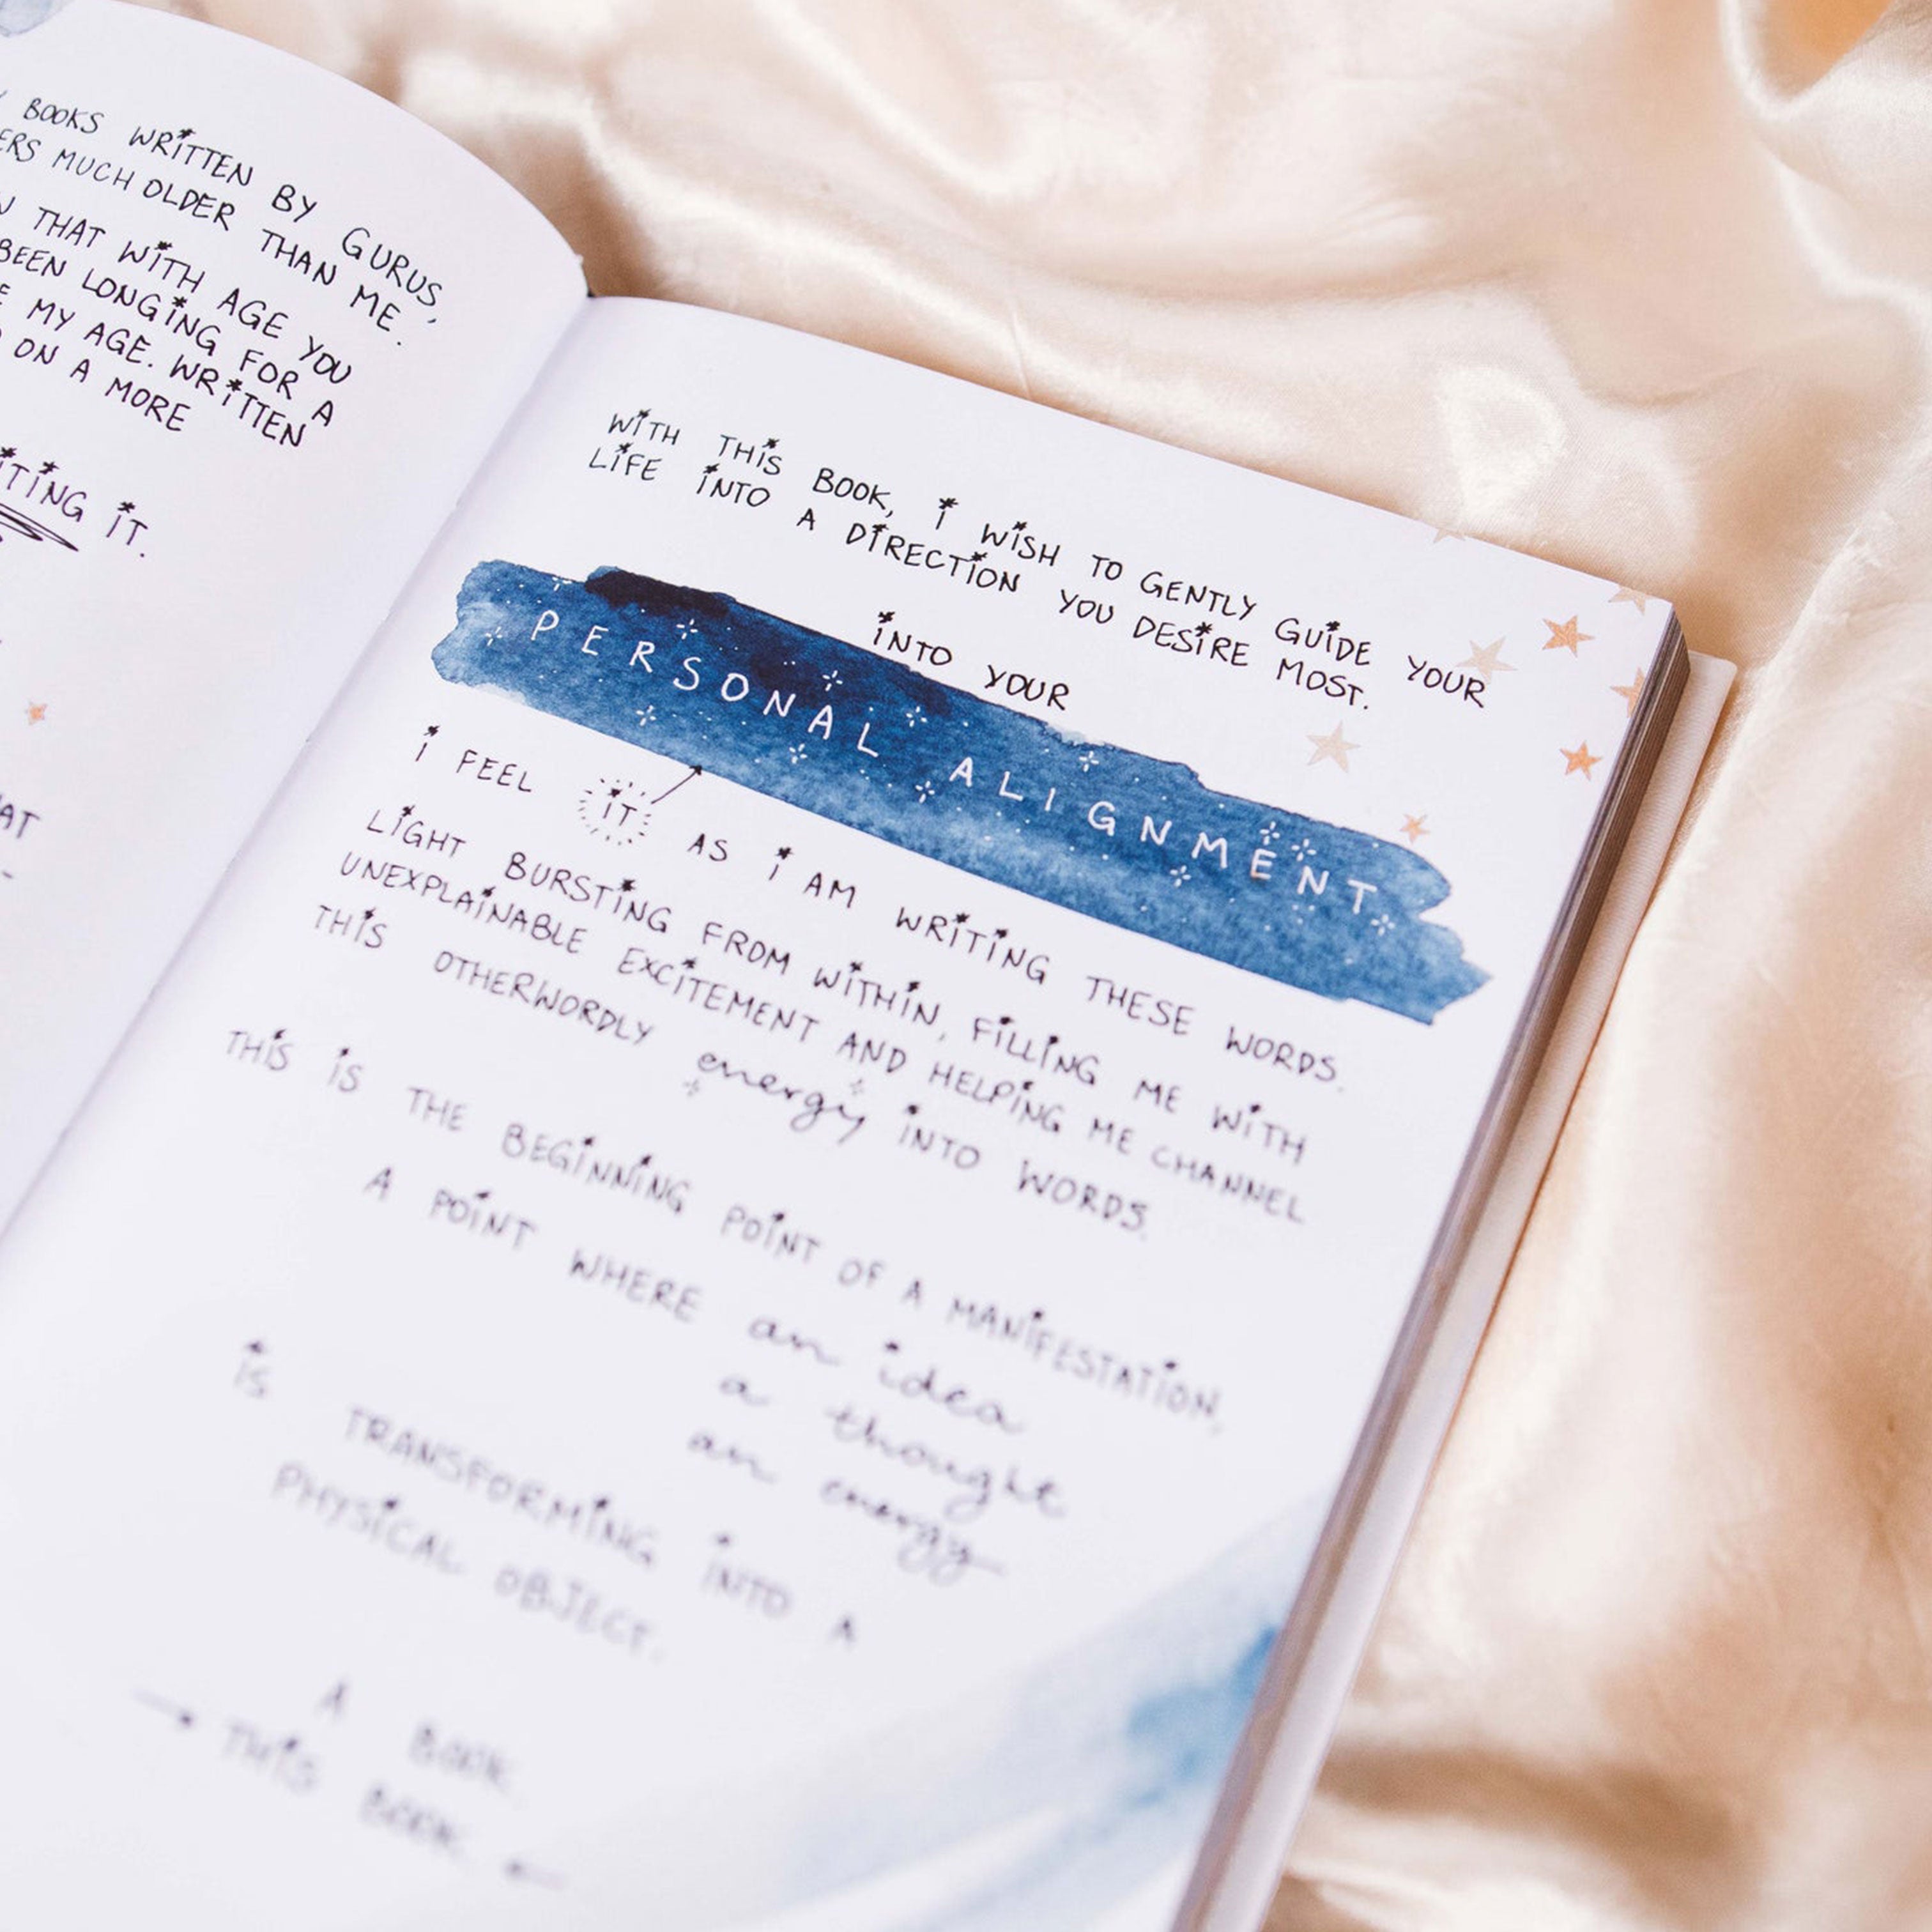 BOOKS WRiTTEN BY GURUS,
MUCH OLDER THAN ME.
THAT WiTH AGE YOU
BEEN LONGiNG FOR A
MY AGE. WRiTTEN
ON A MORE
iT.
WiTH THiS BOOK, i WiSH TO GENTLY GUiDE YOUR
LiFE iNTO A DiRECTiON YOU DESiRE MOST.
iNTO YOUR
PERSONAL ALIGNMENT
i FEEL iT AS i AM WRiTiNG THESE WORDS.
LiGHT BURSTiNG FROM WiTHiN, FiLLiNG ME WiTH
UNEXPLAiNABLE EXCiTEMENT AND HELPiNG ME CHANNEL
THiS OTHERWORDLY energy iNTO WORDS.
THiS iS THE BEGiNNiNG POiNT OF A MANiFESTATiON,
A POiNT WHERE an idea
a thought
an energy
iS TRANSFORMiNG iNTO A
PHYSiCAL OBJECT.
A BOOK.
THiS BOOK.